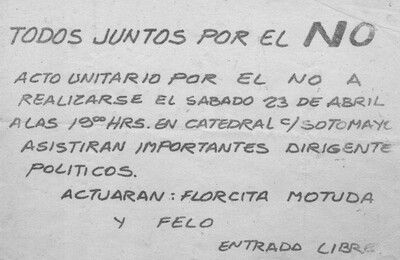 TODOS JUNTOS POR EL NO
ACTO UNITARIO POR EL NO A
REALIZARSE EL SABADO 23 DE ABRIL
A LAS 19⁰⁰ HRS. EN CATEDRAL c/ SOTOMAYO
ASISTIRAN IMPORTANTES DIRIGENTE
POLITICOS.
ACTUARAN: FLORCITA MOTUDA
Y FELO
ENTRADO LIBRE